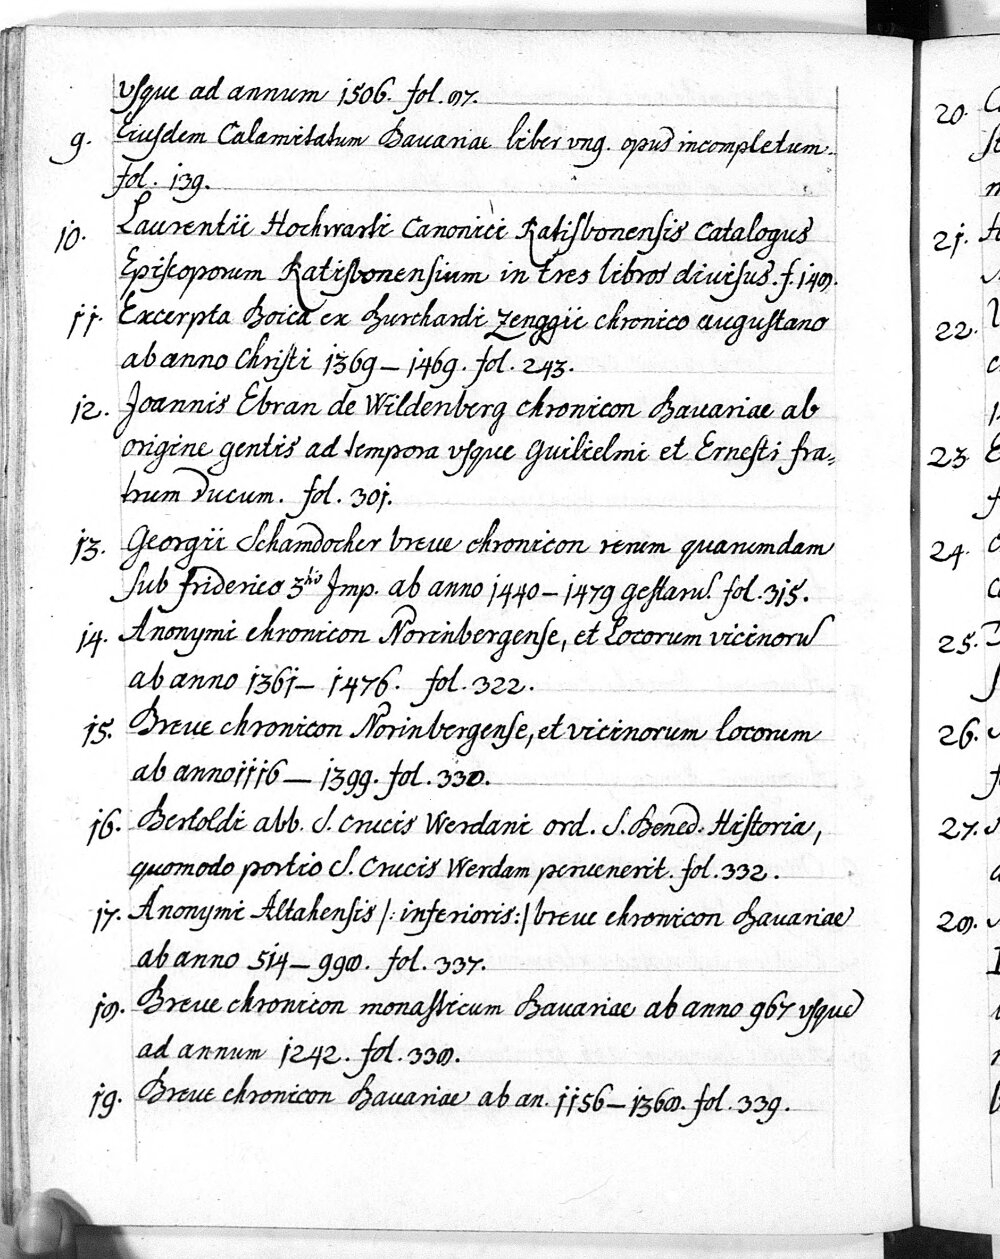 vsque ad annum 1506. fol. 87.
9. Eiusdem Calamitatum Bauariae liber vng. opus incompletum.
fol. 139.
10. Laurentii Hochwarti Canonici Ratisbonensis Catalogus
Episcoporum Ratisbonensium in tres libros diuisus. f. 148.
11. Excerpta Boica ex Burchardi Zenggii chronico augustano
ab anno Christi 1369 – 1469. fol. 243.
12. Joannis Ebran de Wildenberg chronicon Bauariae ab
origine gentis ad tempora vsque Guilielmi et Ernesti fra=
trum Ducum. fol. 301.
13. Georgii Schamdocher breue chronicon rerum quarumdam
sub friderico 3tio Imp. ab anno 1440 – 1479 gestarū. fol. 315.
14. Anonymi chronicon Norinbergense, et Locorum vicinorū
ab anno 1361 – 1476. fol. 322.
15. Breue chronicon Norinbergense, et vicinorum locorum
ab anno 1116 — 1399. fol. 330.
16. Bertoldi abb. S. Crucis Werdani ord. S. Bened. Historia,
quomodo portio S. Crucis Werdam peruenerit. fol. 332.
17. Anonymi Altahensis /: inferioris :/ breue chronicon Bauariae
ab anno 514 – 998. fol. 337.
18. Breue chronicon monasticum Bauariae ab anno 967 vsque
ad annum 1242. fol. 338.
19. Breue chronicon Bauariae ab an. 1156 – 1368. fol. 339.
20.
21.
22.
23
24.
25.
26.
27.
28.